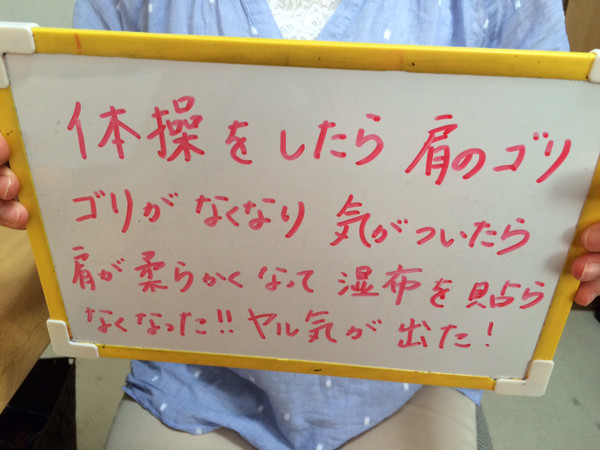 体操をしたら 肩のゴリ
ゴリがなくなり 気がついたら
肩が柔らかくなって 湿布を貼ら
なくなった!! ヤル気が出た!